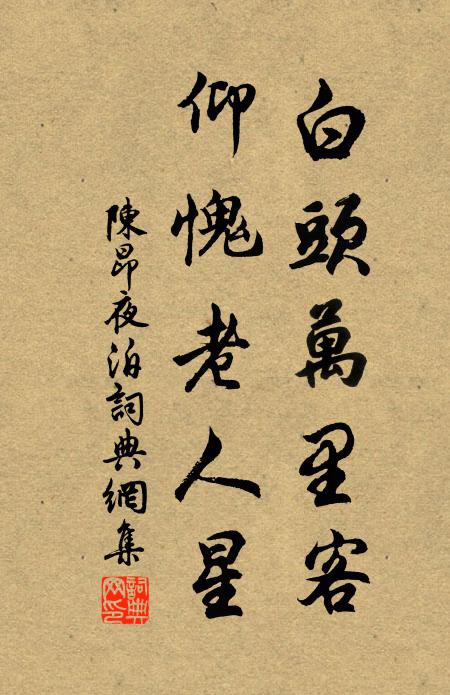 白頭萬里客
仰愧老人星
陳昂夜泊詞典網集
詞典
网印